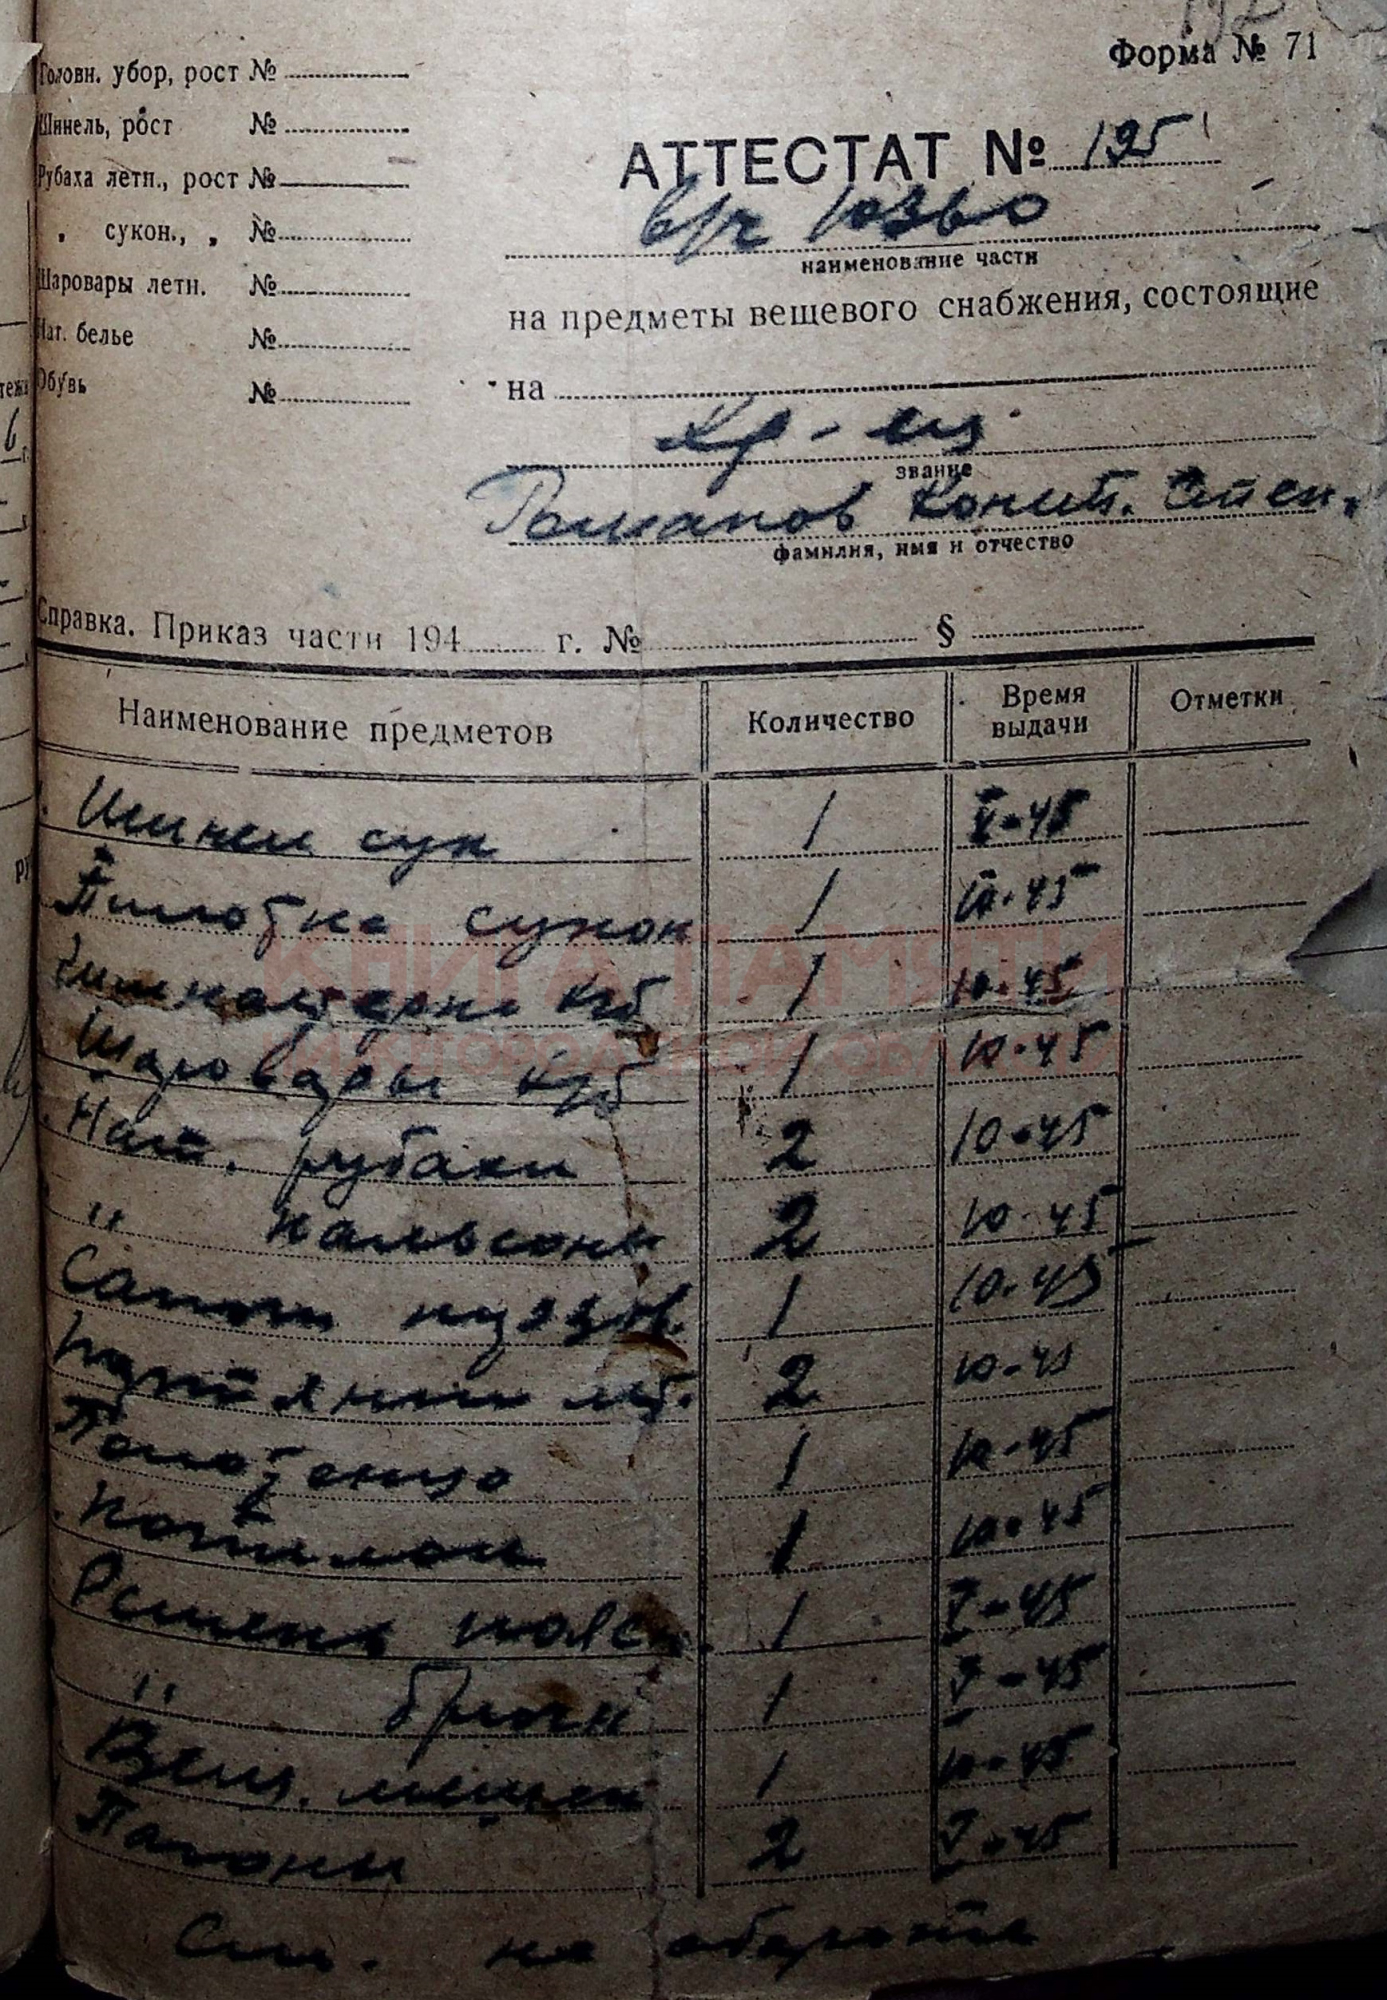 Форма № 71
Головн. убор, рост №
Шинель, рост №
Рубаха летн., рост №
" сукон., " №
Шаровары летн. №
Нат. белье №
Обувь №
АТТЕСТАТ № 195
в/ч 10360
наименование части
на предметы вещевого снабжения, состоящие
на
Кр-ец
звание
Романов Конст. Степ.
фамилия, имя и отчество
Справка. Приказ части 194 г. № §
Наименование предметов Количество Время выдачи Отметки
Шинель сук 1 V-45
Пилотка сукон 1 10.45
Гимнастерка х/б 1 10.45
Шаровары х/б 1 10.45
Нат. рубахи 2 10.45
" кальсоны 2 10.45
Сапоги 1 10.45
Портянки х/б. 2 10-45
Полотенцо 1 10.45
1 10.45
Ремень поясн. 1 V-45
" брючн 1 V-45
Вещ. мешок 1 10.45
Погоны 2 V-45
См. на обороте
КНИГА ПАМЯТИ
НИЖЕГОРОДСКОЙ ОБЛАСТИ